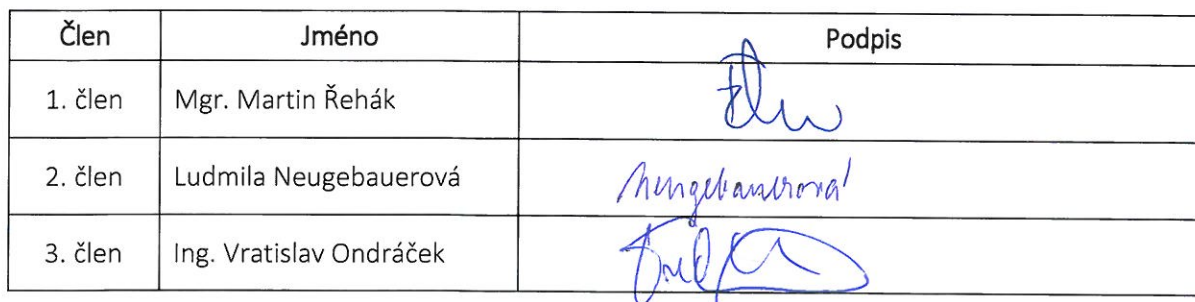 Člen Jméno Podpis
1. člen Mgr. Martin Řehák
2. člen Ludmila Neugebauerová Neugebauerová
3. člen Ing. Vratislav Ondráček